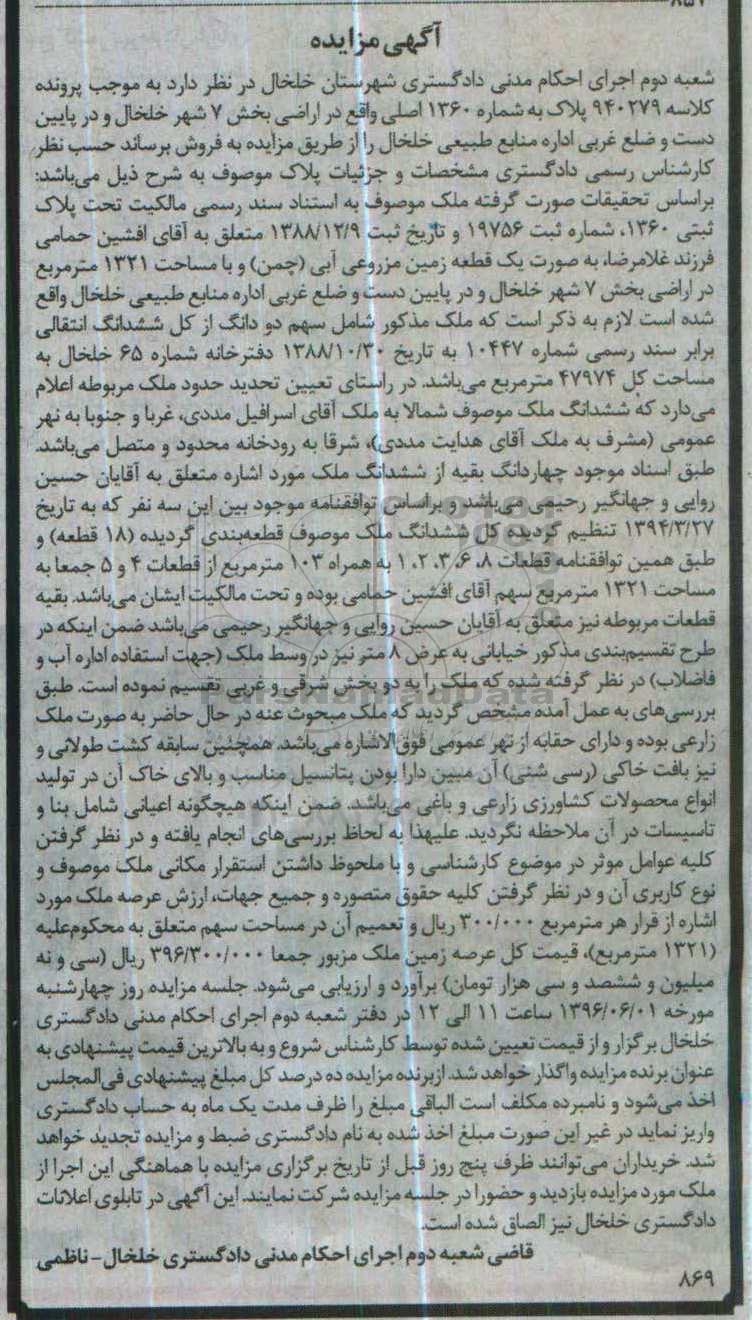 ۸۵۲
آگهی مزایده
شعبه دوم اجرای احکام مدنی دادگستری شهرستان خلخال در نظر دارد به موجب پرونده
کلاسه ۹۴۰۲۷۹ پلاک به شماره ۱۳۶۰ اصلی واقع در اراضی بخش ۷ شهر خلخال و در پایین
دست و ضلع غربی اداره منابع طبیعی خلخال را از طریق مزایده به فروش برساند حسب نظر
کارشناس رسمی دادگستری مشخصات و جزئیات پلاک موصوف به شرح ذیل می‌باشد:
براساس تحقیقات صورت گرفته ملک موصوف به استناد سند رسمی مالکیت تحت پلاک
ثبتی ۱۳۶۰، شماره ثبت ۱۹۷۵۶ و تاریخ ثبت ۱۳۸۸/۱۲/۹ متعلق به آقای افشین حمامی
فرزند غلامرضا، به صورت یک قطعه زمین مزروعی آبی (چمن) و با مساحت ۱۳۲۱ مترمربع
در اراضی بخش ۷ شهر خلخال و در پایین دست و ضلع غربی اداره منابع طبیعی خلخال واقع
شده است لازم به ذکر است که ملک مذکور شامل سهم دو دانگ از کل ششدانگ انتقالی
برابر سند رسمی شماره ۱۰۴۴۷ به تاریخ ۱۳۸۸/۱۰/۳۰ دفترخانه شماره ۶۵ خلخال به
مساحت کل ۴۷۹۷۴ مترمربع می‌باشد. در راستای تعیین تحدید حدود ملک مربوطه اعلام
می‌دارد که ششدانگ ملک موصوف شمالا به ملک آقای اسرافیل مددی، غربا و جنوبا به نهر
عمومی (مشرف به ملک آقای هدایت مددی)، شرقا به رودخانه محدود و متصل می‌باشد.
طبق اسناد موجود چهاردانگ بقیه از ششدانگ ملک مورد اشاره متعلق به آقایان حسین
روایی و جهانگیر رحیمی می‌باشد و براساس توافقنامه موجود بین این سه نفر که به تاریخ
۱۳۹۴/۳/۲۷ تنظیم گردیده کل ششدانگ ملک موصوف قطعه‌بندی گردیده (۱۸ قطعه) و
طبق همین توافقنامه قطعات ۸، ۶، ۳، ۲، ۱ به همراه ۱۰۳ مترمربع از قطعات ۴ و ۵ جمعا به
مساحت ۱۳۲۱ مترمربع سهم آقای افشین حمامی بوده و تحت مالکیت ایشان می‌باشد. بقیه
قطعات مربوطه نیز متعلق به آقایان حسین روایی و جهانگیر رحیمی می‌باشد ضمن اینکه در
طرح تقسیم‌بندی مذکور خیابانی به عرض ۸ متر نیز در وسط ملک (جهت استفاده اداره آب و
فاضلاب) در نظر گرفته شده که ملک را به دو بخش شرقی و غربی تقسیم نموده است. طبق
بررسی‌های به عمل آمده مشخص گردید که ملک مبحوث عنه در حال حاضر به صورت ملک
زارعی بوده و دارای حقابه از نهر عمومی فوق‌الاشاره می‌باشد. همچنین سابقه کشت طولانی و
نیز بافت خاکی (رسی شنی) آن مبین دارا بودن پتانسیل مناسب و بالای خاک آن در تولید
انواع محصولات کشاورزی زارعی و باغی می‌باشد. ضمن اینکه هیچگونه اعیانی شامل بنا و
تاسیسات در آن ملاحظه نگردید. علیهذا به لحاظ بررسی‌های انجام یافته و در نظر گرفتن
کلیه عوامل موثر در موضوع کارشناسی و با ملحوظ داشتن استقرار مکانی ملک موصوف و
نوع کاربری آن و در نظر گرفتن کلیه حقوق متصوره و جمیع جهات، ارزش عرصه ملک مورد
اشاره از قرار هر مترمربع ۳۰۰/۰۰۰ ریال و تعمیم آن در مساحت سهم متعلق به محکوم‌علیه
(۱۳۲۱ مترمربع)، قیمت کل عرصه زمین ملک مزبور جمعا ۳۹۶/۳۰۰/۰۰۰ ریال (سی و نه
میلیون و ششصد و سی هزار تومان) برآورد و ارزیابی می‌شود. جلسه مزایده روز چهارشنبه
مورخه ۱۳۹۶/۰۶/۰۱ ساعت ۱۱ الی ۱۲ در دفتر شعبه دوم اجرای احکام مدنی دادگستری
خلخال برگزار و از قیمت تعیین شده توسط کارشناس شروع و به بالاترین قیمت پیشنهادی به
عنوان برنده مزایده واگذار خواهد شد. ازبرنده مزایده ده درصد کل مبلغ پیشنهادی فی‌المجلس
اخذ می‌شود و نامبرده مکلف است الباقی مبلغ را ظرف مدت یک ماه به حساب دادگستری
واریز نماید در غیر این صورت مبلغ اخذ شده به نام دادگستری ضبط و مزایده تجدید خواهد
شد. خریداران می‌توانند ظرف پنج روز قبل از تاریخ برگزاری مزایده با هماهنگی این اجرا از
ملک مورد مزایده بازدید و حضورا در جلسه مزایده شرکت نمایند. این آگهی در تابلوی اعلانات
دادگستری خلخال نیز الصاق شده است.
قاضی شعبه دوم اجرای احکام مدنی دادگستری خلخال - ناظمی
۸۶۹